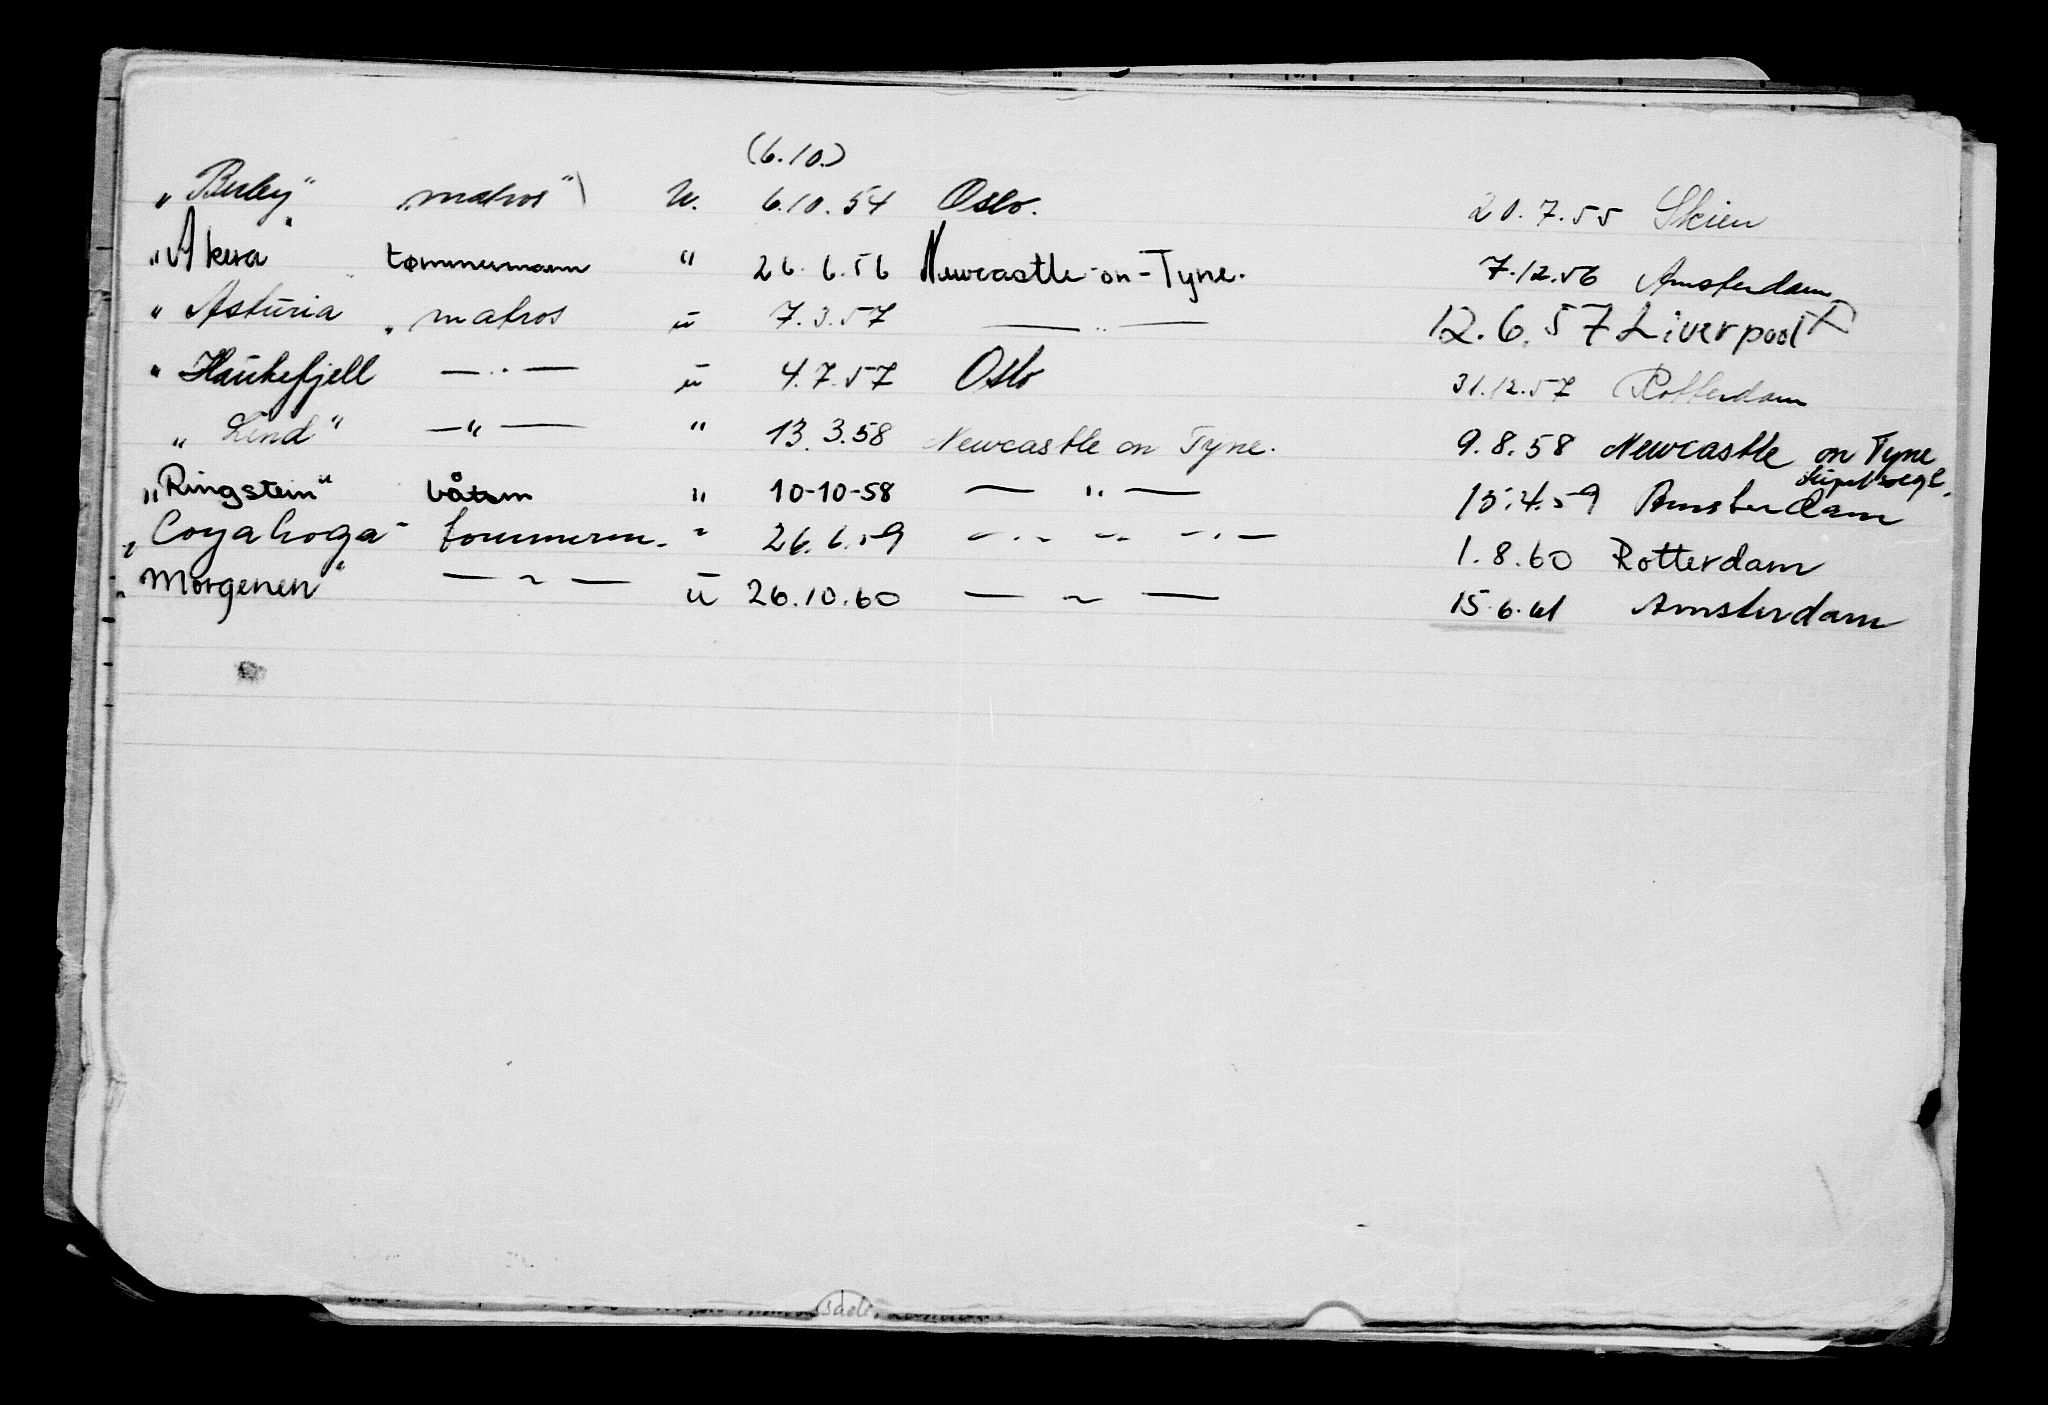 (6.10.)
"Burley" matros" U. 6.10.54 Oslo. 20.7.55 Skien
"Akera" tømmermann " 26.6.56 Newcastle-on-Tyne. 7.12.56 Amsterdam
" Asturia " matros u 7.3.57 — " — 12.6.57 Liverpool
" Haukefjell — " — u 4.7.57 Oslo 31.12.57 Rotterdam
" Lind" — " — " 13.3.58 Newcastle on Tyne. 9.8.58 Newcastle on Tyne
"Ringstein" båtsm " 10-10-58 — " — 15.4.59 Amsterdam
"Coyahoga" tømmerm. " 26.6.59 — " — " — " — 1.8.60 Rotterdam
"Morgenen" — " — u 26.10.60 — " — 15.6.61 Amsterdam